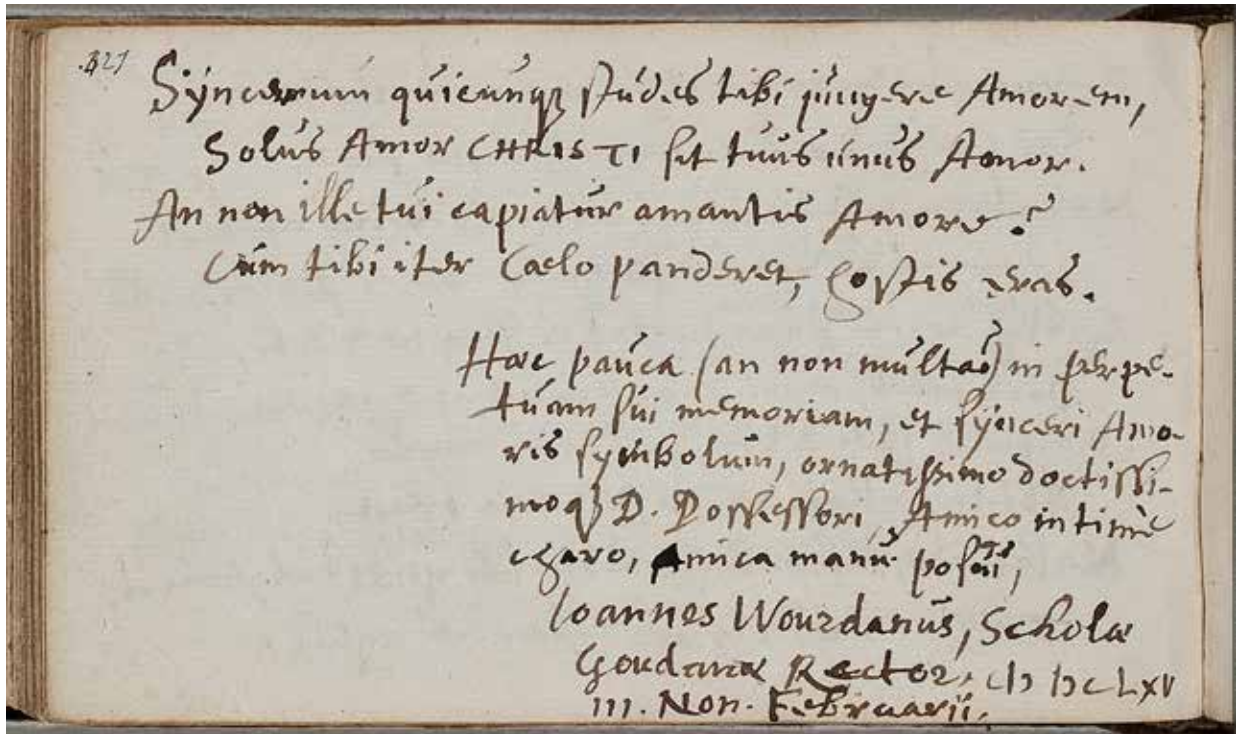 327
Sÿncerum quicunqz studes tibi jungere Amorem,
Solus Amor CHRISTI sit tuus unus Amor.
An non ille tui capiatur amantis Amore?
Cum tibi iter Caelo panderet, hostis eras.
Haec pauca (an non multa?) in perpe-
tuam sui memoriam, et sÿnceri Amo-
ris symbolum, ornatissimo doctissi-
moqz D. Possessori, Amico intimè
charo, Amica manu posuit,
Ioannes Wourdanus, Scholae
Goudanae Rector, cIɔ Iɔc LXV
III. Non. Februarii.